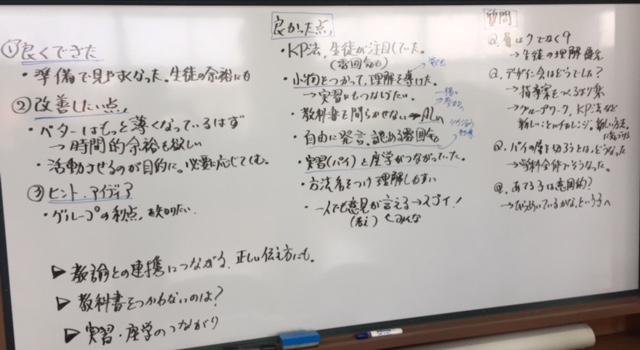 ①良くできた
・準備で見やすくなった。生徒の余裕にも
②改善したい点、
・ベターはもっと薄くなっているはず
→時間的余裕を欲しい
・活動させるのが目的に。必要に応じてでも。
③ヒント・アイディア
・グループの利点、を知りたい。
▶教諭との連携につながる、正しい伝え方にも。
▶教科書をつかわないのは？
▶実習・座学のつながり
良かった点、
・KP法、生徒が注目していた。
(雰囲気も)
・小物をつかって、理解を導けた。
→実習にもつなげたい。
・教科書を開らかせない→AL
・自由に発言。認める雰囲気
・実習(パイ)と座学がつながっていた。
・方法名をつけ理解しやすい
・一人でも意見が言える→スゴイ！
(考え)
みんな
質問
Q.層は9でなく9
→生徒の理解優先
Q.デザイン会はどうでした？
→指導案をつくるより楽
→グループワーク、KP法など
新しいことにチャレンジ。
Q.パイの層を切るうとはどうなった
Q.あてるうは意図的？